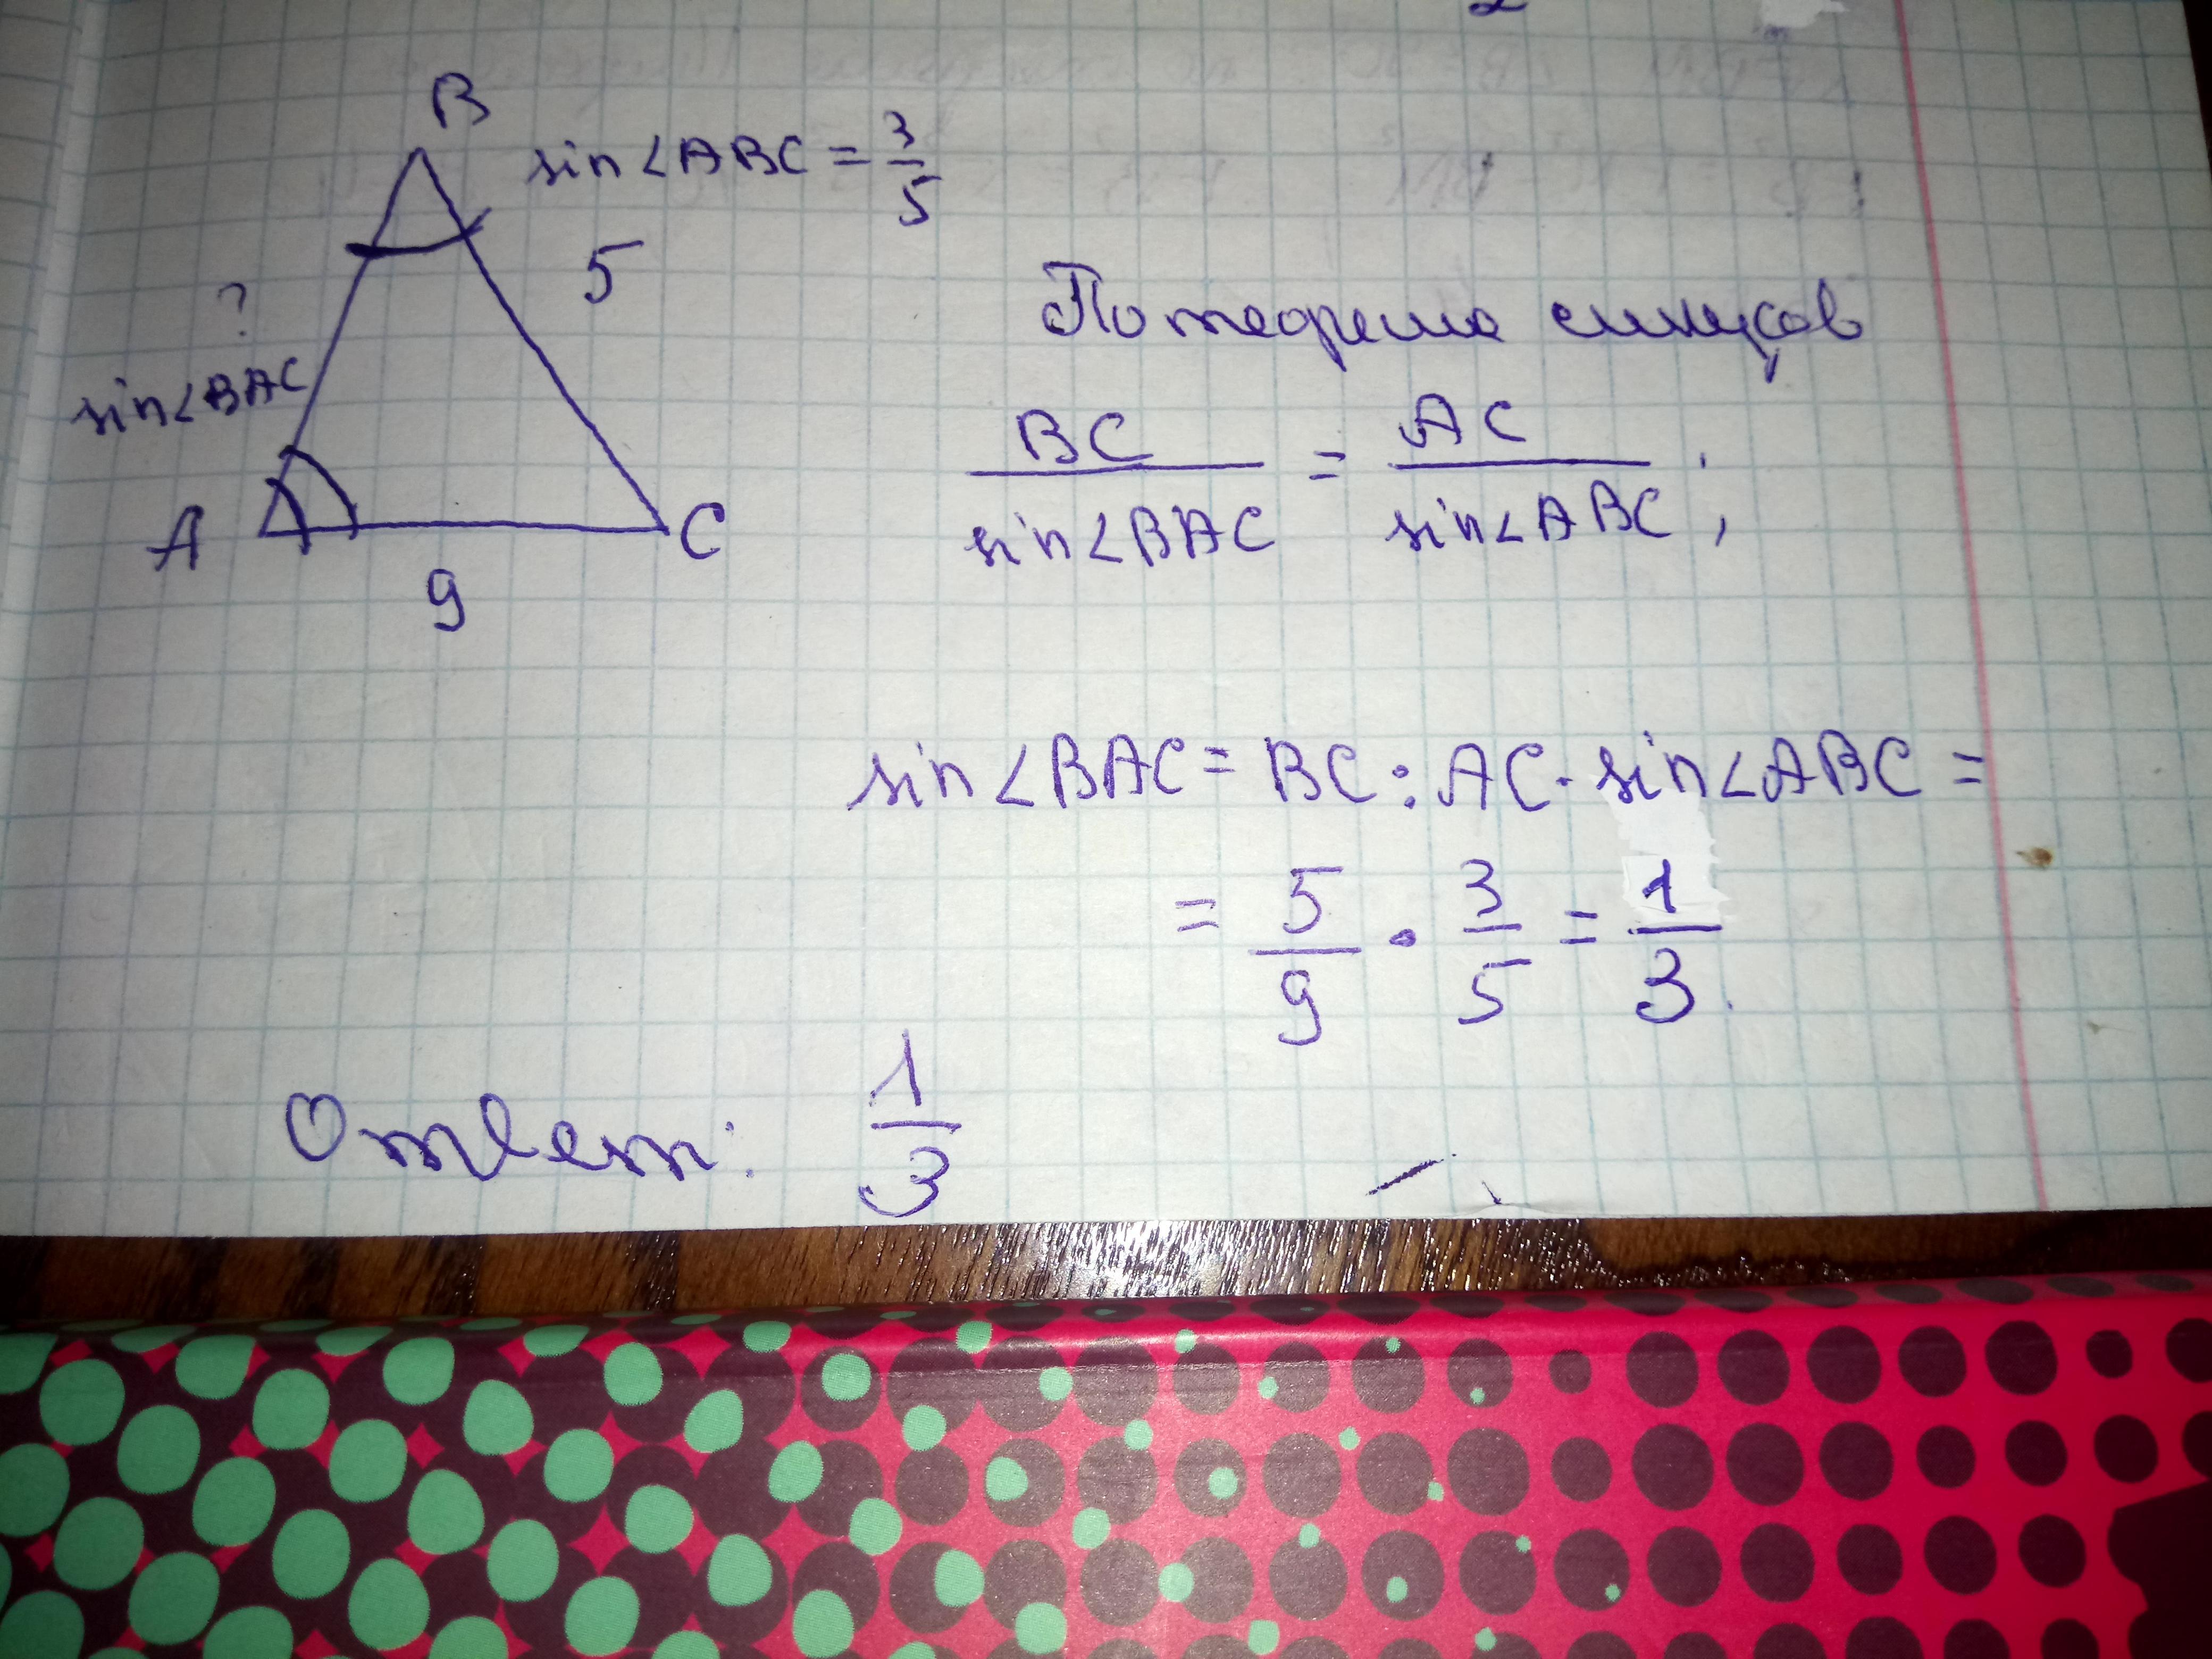 B
sin∠ABC = 3/5
5
?
sin∠BAC
A
C
9
По теорема синусов
BC/sin∠BAC = AC/sin∠ABC ;
sin∠BAC = BC : AC · sin∠ABC =
= 5/9 · 3/5 = 1/3.
Ответ: 1/3